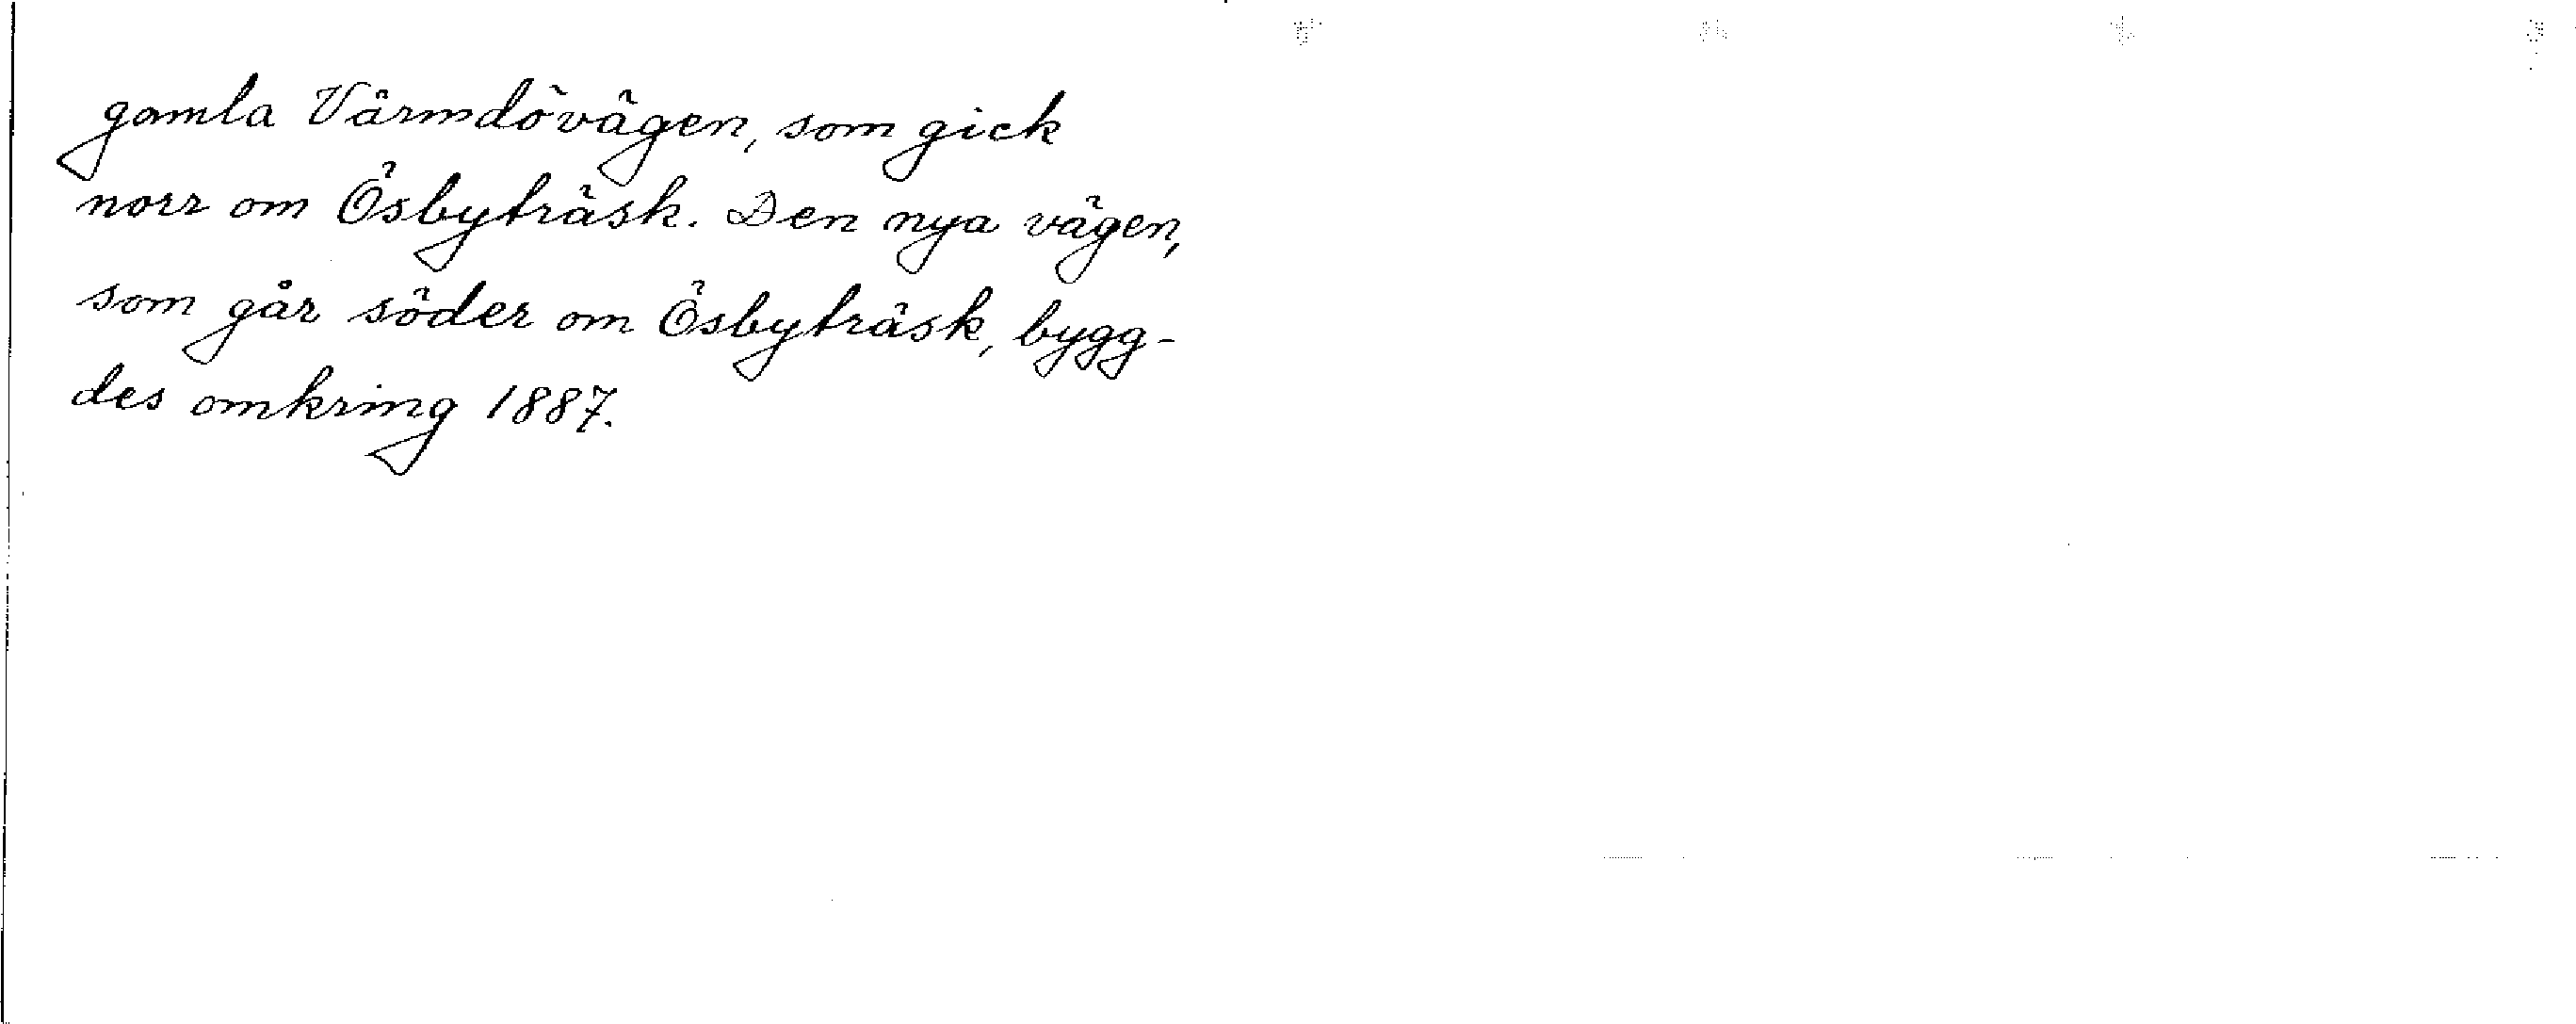 gamla Värmdövägen, som gick
norr om Ösbyträsk. Den nya vägen,
som går söder om Ösbyträsk, bygg-
des omkring 1887.